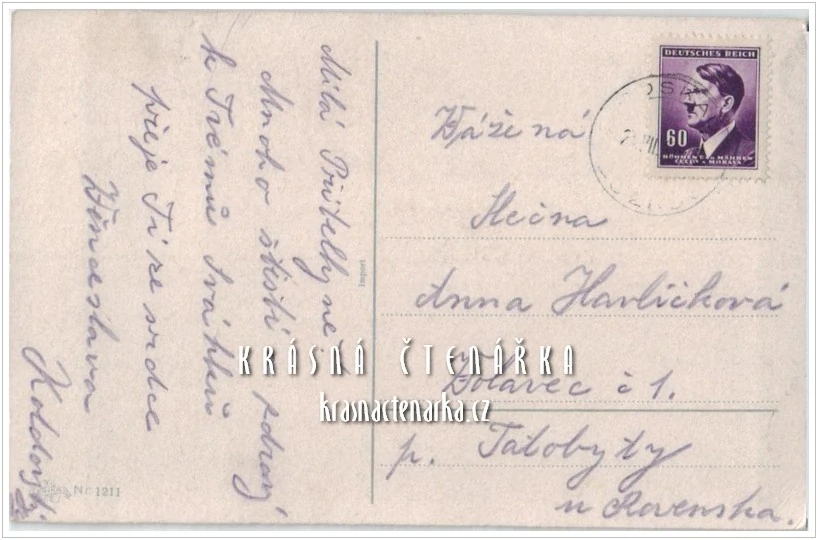 Milá Přítelkyně
Mnoho štěstí zdraví
k Tvému Svátku
přeje Ti ze srdce
Věnceslava
Import
Nr. 1211
DEUTSCHES REICH
60
BÖHMEN U. MÄHREN
ČECHY A MORAVA
Vážená
Slečna
Anna Havlíčková
Volavec č 1.
p. Tatobyty
u Rovenska.
KRÁSNÁ ČTENÁŘKA
krasnactenarka.cz